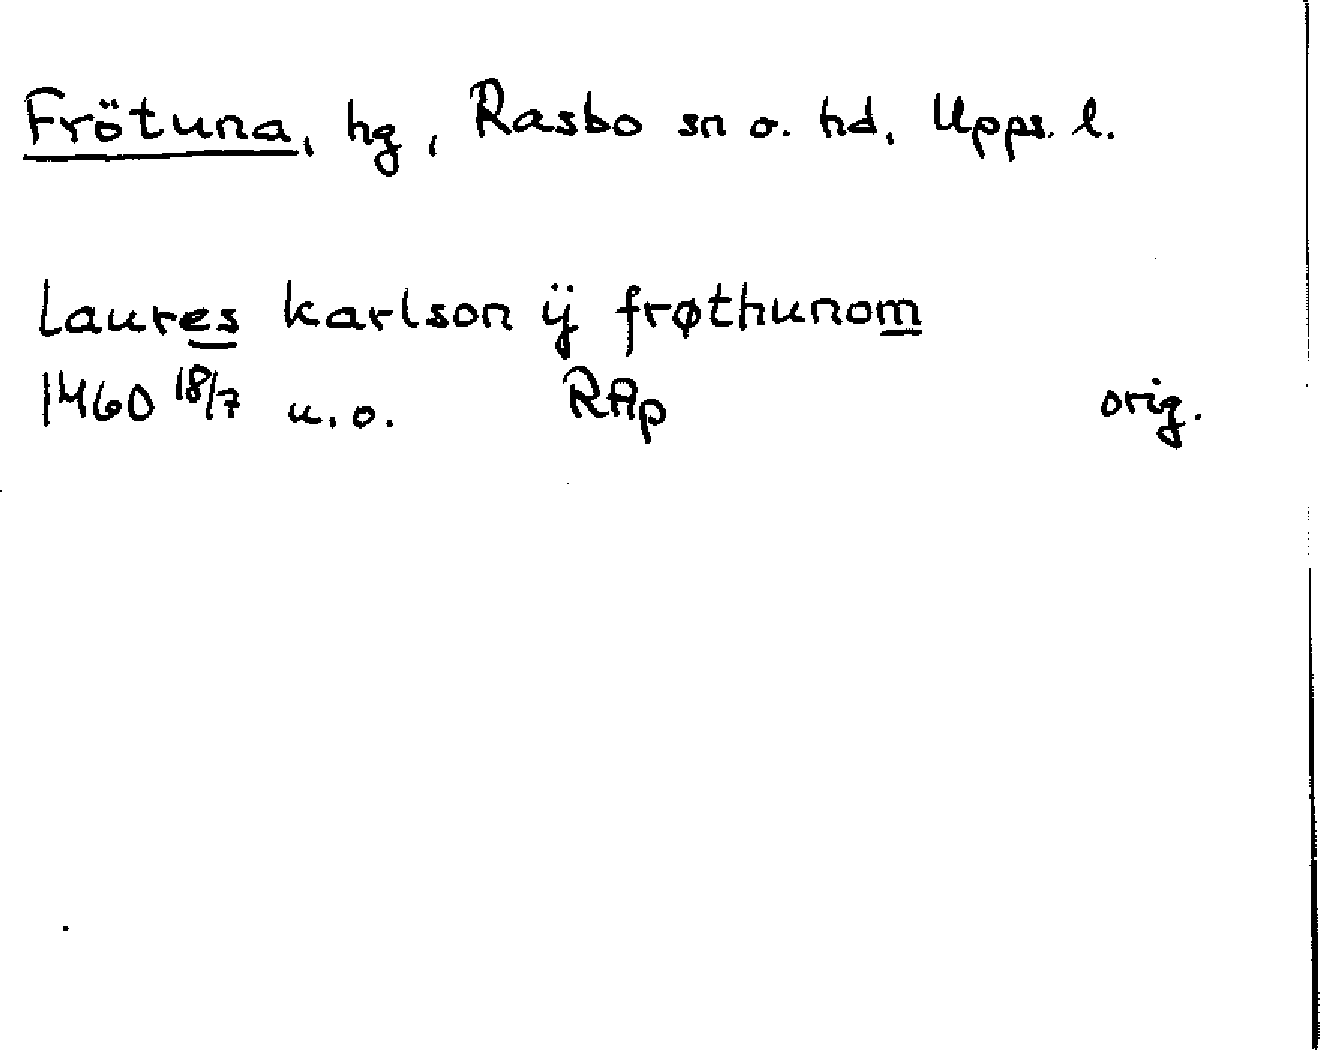 Frötuna, hg, Rasbo sn o. hd, Upps. l.
Laures karlson ÿ frøthunom
1460 18/7 u.o. RAp orig.